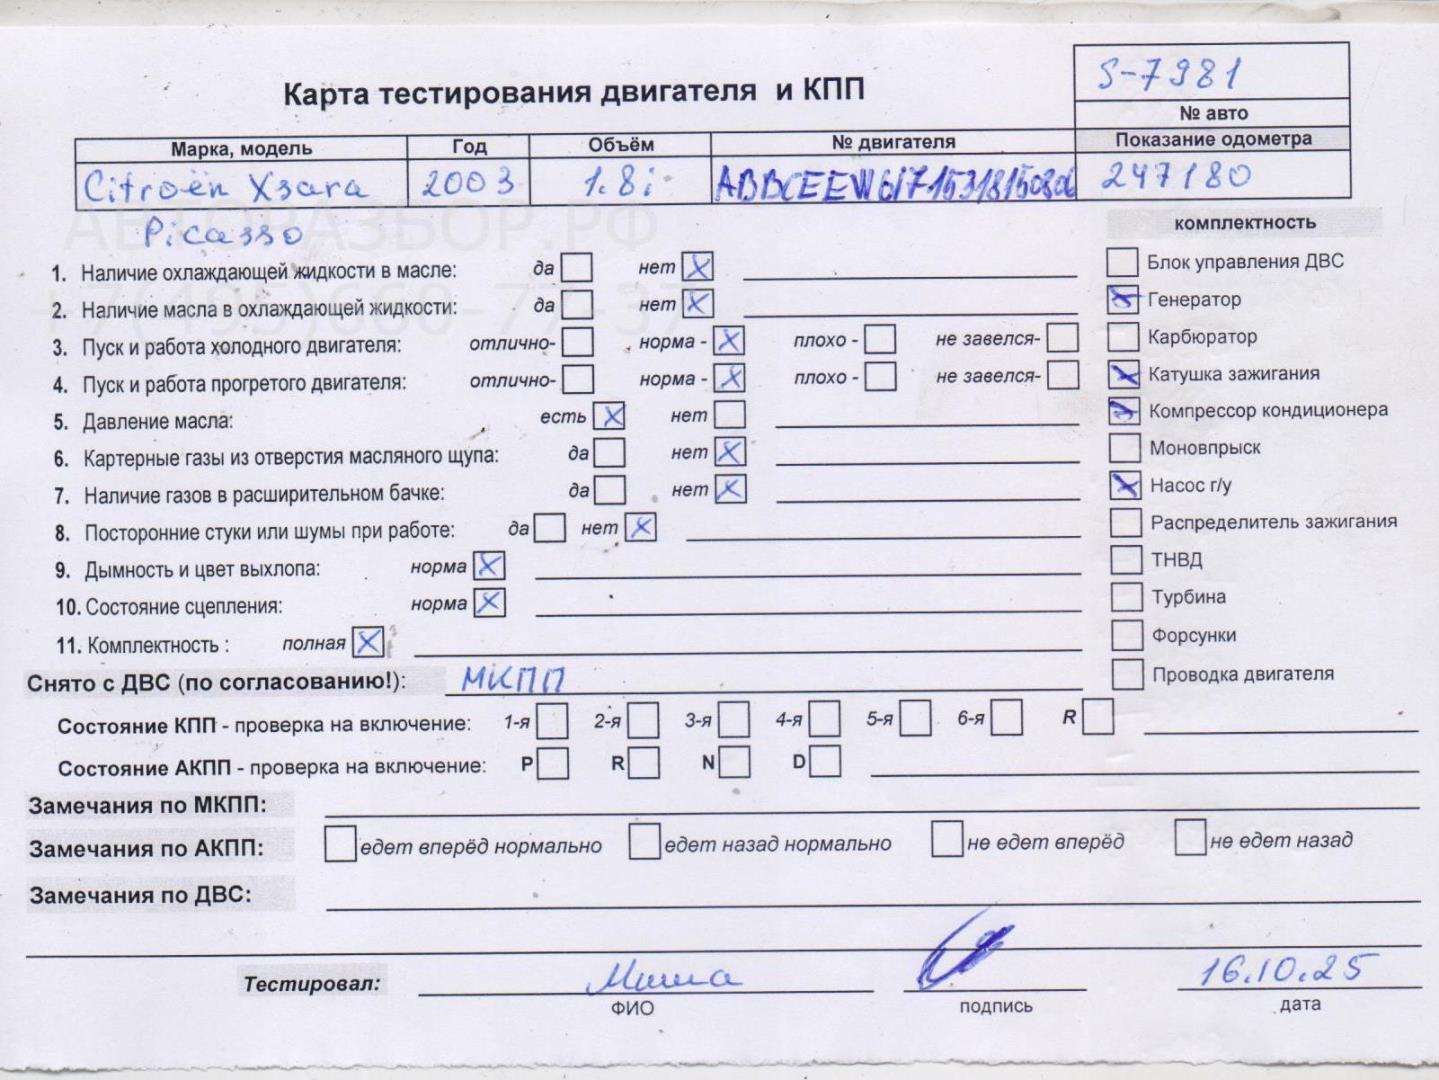 S-7981
Карта тестирования двигателя и КПП
№ авто
Марка, модель Год Объём № двигателя Показание одометра
Citroën Xsara 2003 1.8i 247180
Picasso
АВТОРАЗБОР.РФ
+7(495)660-77-37
комплектность
1. Наличие охлаждающей жидкости в масле: да нет
Блок управления ДВС
2. Наличие масла в охлаждающей жидкости: да нет
Генератор
3. Пуск и работа холодного двигателя: отлично- норма - плохо - не завелся-
Карбюратор
4. Пуск и работа прогретого двигателя: отлично- норма - плохо - не завелся-
Катушка зажигания
5. Давление масла: есть нет
Компрессор кондиционера
6. Картерные газы из отверстия масляного щупа: да нет
Моновпрыск
7. Наличие газов в расширительном бачке: да нет
Насос г/у
8. Посторонние стуки или шумы при работе: да нет
Распределитель зажигания
9. Дымность и цвет выхлопа: норма
ТНВД
10. Состояние сцепления: норма
Турбина
11. Комплектность : полная
Форсунки
Снято с ДВС (по согласованию!): МКПП
Проводка двигателя
Состояние КПП - проверка на включение: 1-я 2-я 3-я 4-я 5-я 6-я R
Состояние АКПП - проверка на включение: P R N D
Замечания по МКПП:
Замечания по АКПП: едет вперёд нормально едет назад нормально не едет вперёд не едет назад
Замечания по ДВС:
Тестировал: Миша 16.10.25
ФИО подпись дата